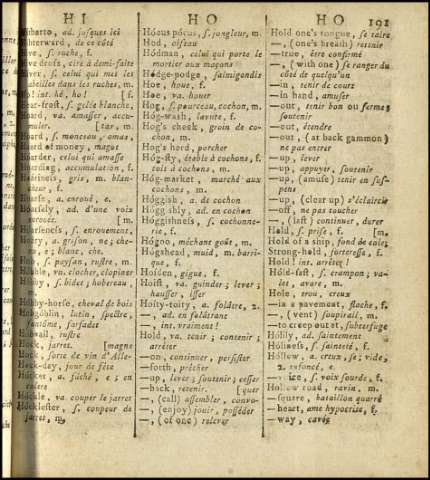 H I
H O
H O
191
Hitherto, ad. jusques ici
Hitherward, de ce côté
Hive, s. ruche, f.
Hive dross, cire à demi-faite
Hiver, s. celui qui met les
abeilles dans les ruches, m.
Ho! int. hé, ho! [f.
Hoar-frost, s. gelée blanche,
Hoard, va. amasser, accu-
muler. [tar, m.
Hoard, s. monceau, amas,
Hoard of money, magot
Hoarder, celui qui amasse
Hoarding, accumulation, f.
Hoariness, gris, m. blan-
cheur, f.
Hoarse, a. enroué, e.
Hoarsely, ad. d'une voix
enrouée. [m.
Hoarseness, s. enrouement,
Hoary, a. grison, ne; che-
nu, e; blanc, che.
Hob, s. paysan, rustre, m.
Hobble, vn. clocher, clopiner
Hobby, s. bidet; hobereau,
Hobby-horse, cheval de bois
Hobgoblin, lutin, spectre,
fantôme, farfadet
Hobnail, rustre
Hock, jarret. [magne
Hock, sorte de vin d'Alle-
Hock-day, jour de fête
Hocker, a. fâché, e; en
colere
Hockle, va. couper le jarret
Hocklester, s. coupeur de
jarret, m,
Hócus pócus, s. jongleur, m.
Hod, oiseau
Hódman, celui qui porte le
mortier aux maçons
Hódge-podge, salmigondis
Hoe, houe, f.
Hoe, va. houer
Hog, s. pourceau, cochon, m.
Hóg-wash, lavure, f.
Hog's cheek, groin de co-
chon, m.
Hog's herd, porcher
Hóg-sty, étable à cochons, f.
toit à cochons, m.
Hóg-market, marché aux
cochons, m.
Hóggish, a. de cochon
Hógg shly, ad. en cochon
Hóggishness, s. cochonne-
rie, f.
Hógoo, méchant goût, m.
Hógshead, muid, m. barri-
que, f.
Hoiden, gigue, f.
Hoist, va. guinder; lever;
hausser, isser
Hoity-toity, a. folâtre, 2.
—, ad. en folâtrant
—, int. vraiment!
Hold, va. tenir; contenir;
arrêter
—on, continuer, persister
—forth, prêcher
—up, lever; soutenir; cesser
—back, retenir. [quer
—, (call) assembler, convo-
—, (enjoy) jouir, posséder
—, (of one) relever
Hold one's tongue, se taire
—, (one's breath) retenir
—true, être confirmé
—, (with one) se ranger du
côté de quelqu'un
—in, tenir de court
—in hand, amuser
—our, tenir bon ou ferme;
soutenir
—out, étendre
—out, (at back gammon)
ne pas entrer
—up, lever
—up, appuyer, soutenir
—up, (amuse) tenir en sus-
pens
—up, (clear up) s'éclaircir
—off, ne pas toucher
—, (last) continuer, durer
Hold, s. prise, f. [m.
Hold of a ship, fond de cale,
Strong-hold, forteresse, f.
Hold! int. arrêtez!
Hóld-fast, s. crampon; va-
let, avare, m.
Hole, trou, creux
—in a pavement, flache, f.
—, (vent) soupirail, m.
—to creep out at, subterfuge
Hólily, ad. saintement
Hóliness, s. sainteté, f.
Hóllow, a. creux, se; vide,
2. enfoncé, e.
—v. ice, s. voix sourde, f.
Hollow road, ravin, m.
—square, bataillon quarré
—heart, ame hypocrite, f.
—way, cavée